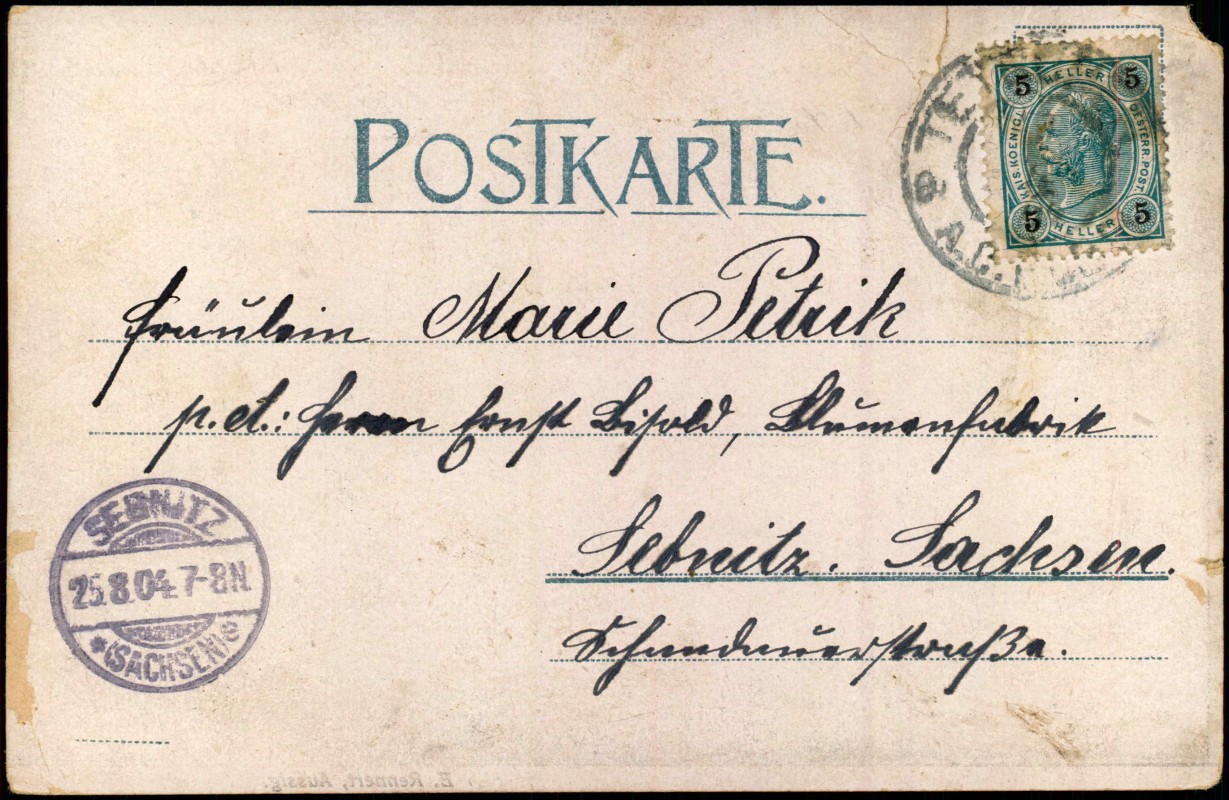 POSTKARTE.
5 HELLER 5
KAIS. KOENIGL.
OESTERR. POST.
5 HELLER 5
TE
Fräulein Marie Petrik
p. ad.: Herrn Ernst Bisold, Blumenfabrik
Sebnitz. Sachsen.
Schandauerstraße.
SEBNITZ
25.8.04. 7-8N.
*(SACHSEN)c
E. Rennert, Aussig.